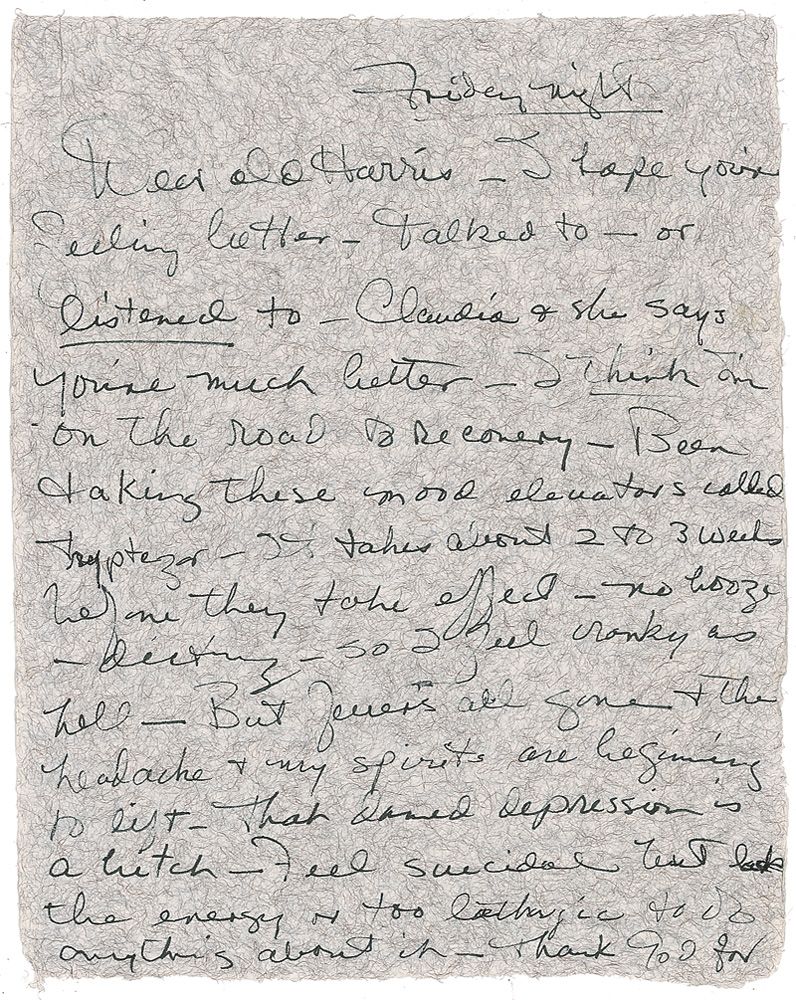 Friday night
Dear old Harris – I hope you're
feeling better – Talked to – or
listened to – Claudia & she says
you're much better – I think I'm
on the road to recovery – Been
taking these mood elevators called
Tryptozor – It takes about 2 to 3 weeks
before they take effect – no booze
– dieting – so I feel cranky as
hell – But fever's all gone & the
headache & my spirits are begining
to lift – That damed depression is
a bitch – Feel suicidal but lack
the energy or too lathrgic to do
anything about it – Thank God for